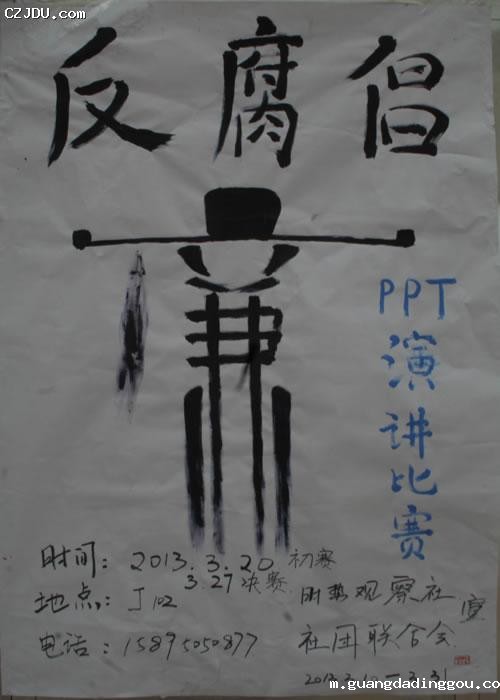 CZJDU.com
反腐倡
廉
PPT
演讲比赛
时间：2013.3.20 初赛
3.27 决赛
地点：J102
电话：15895050877
时势观察社
社团联合会
宣
m.guangdadinggou.co